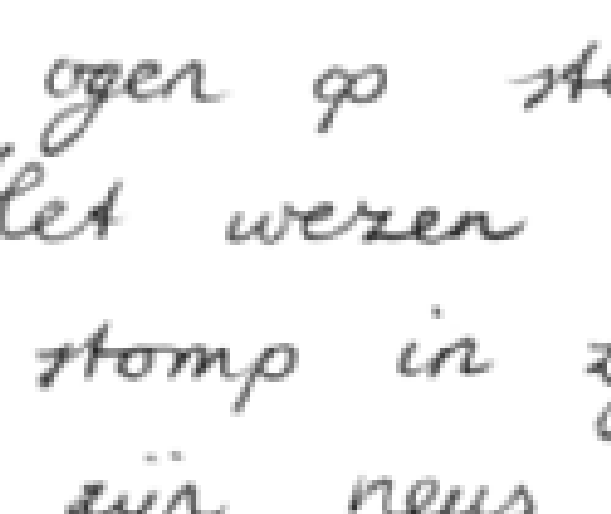 ogen op
wezen
stomp in
zijn neus